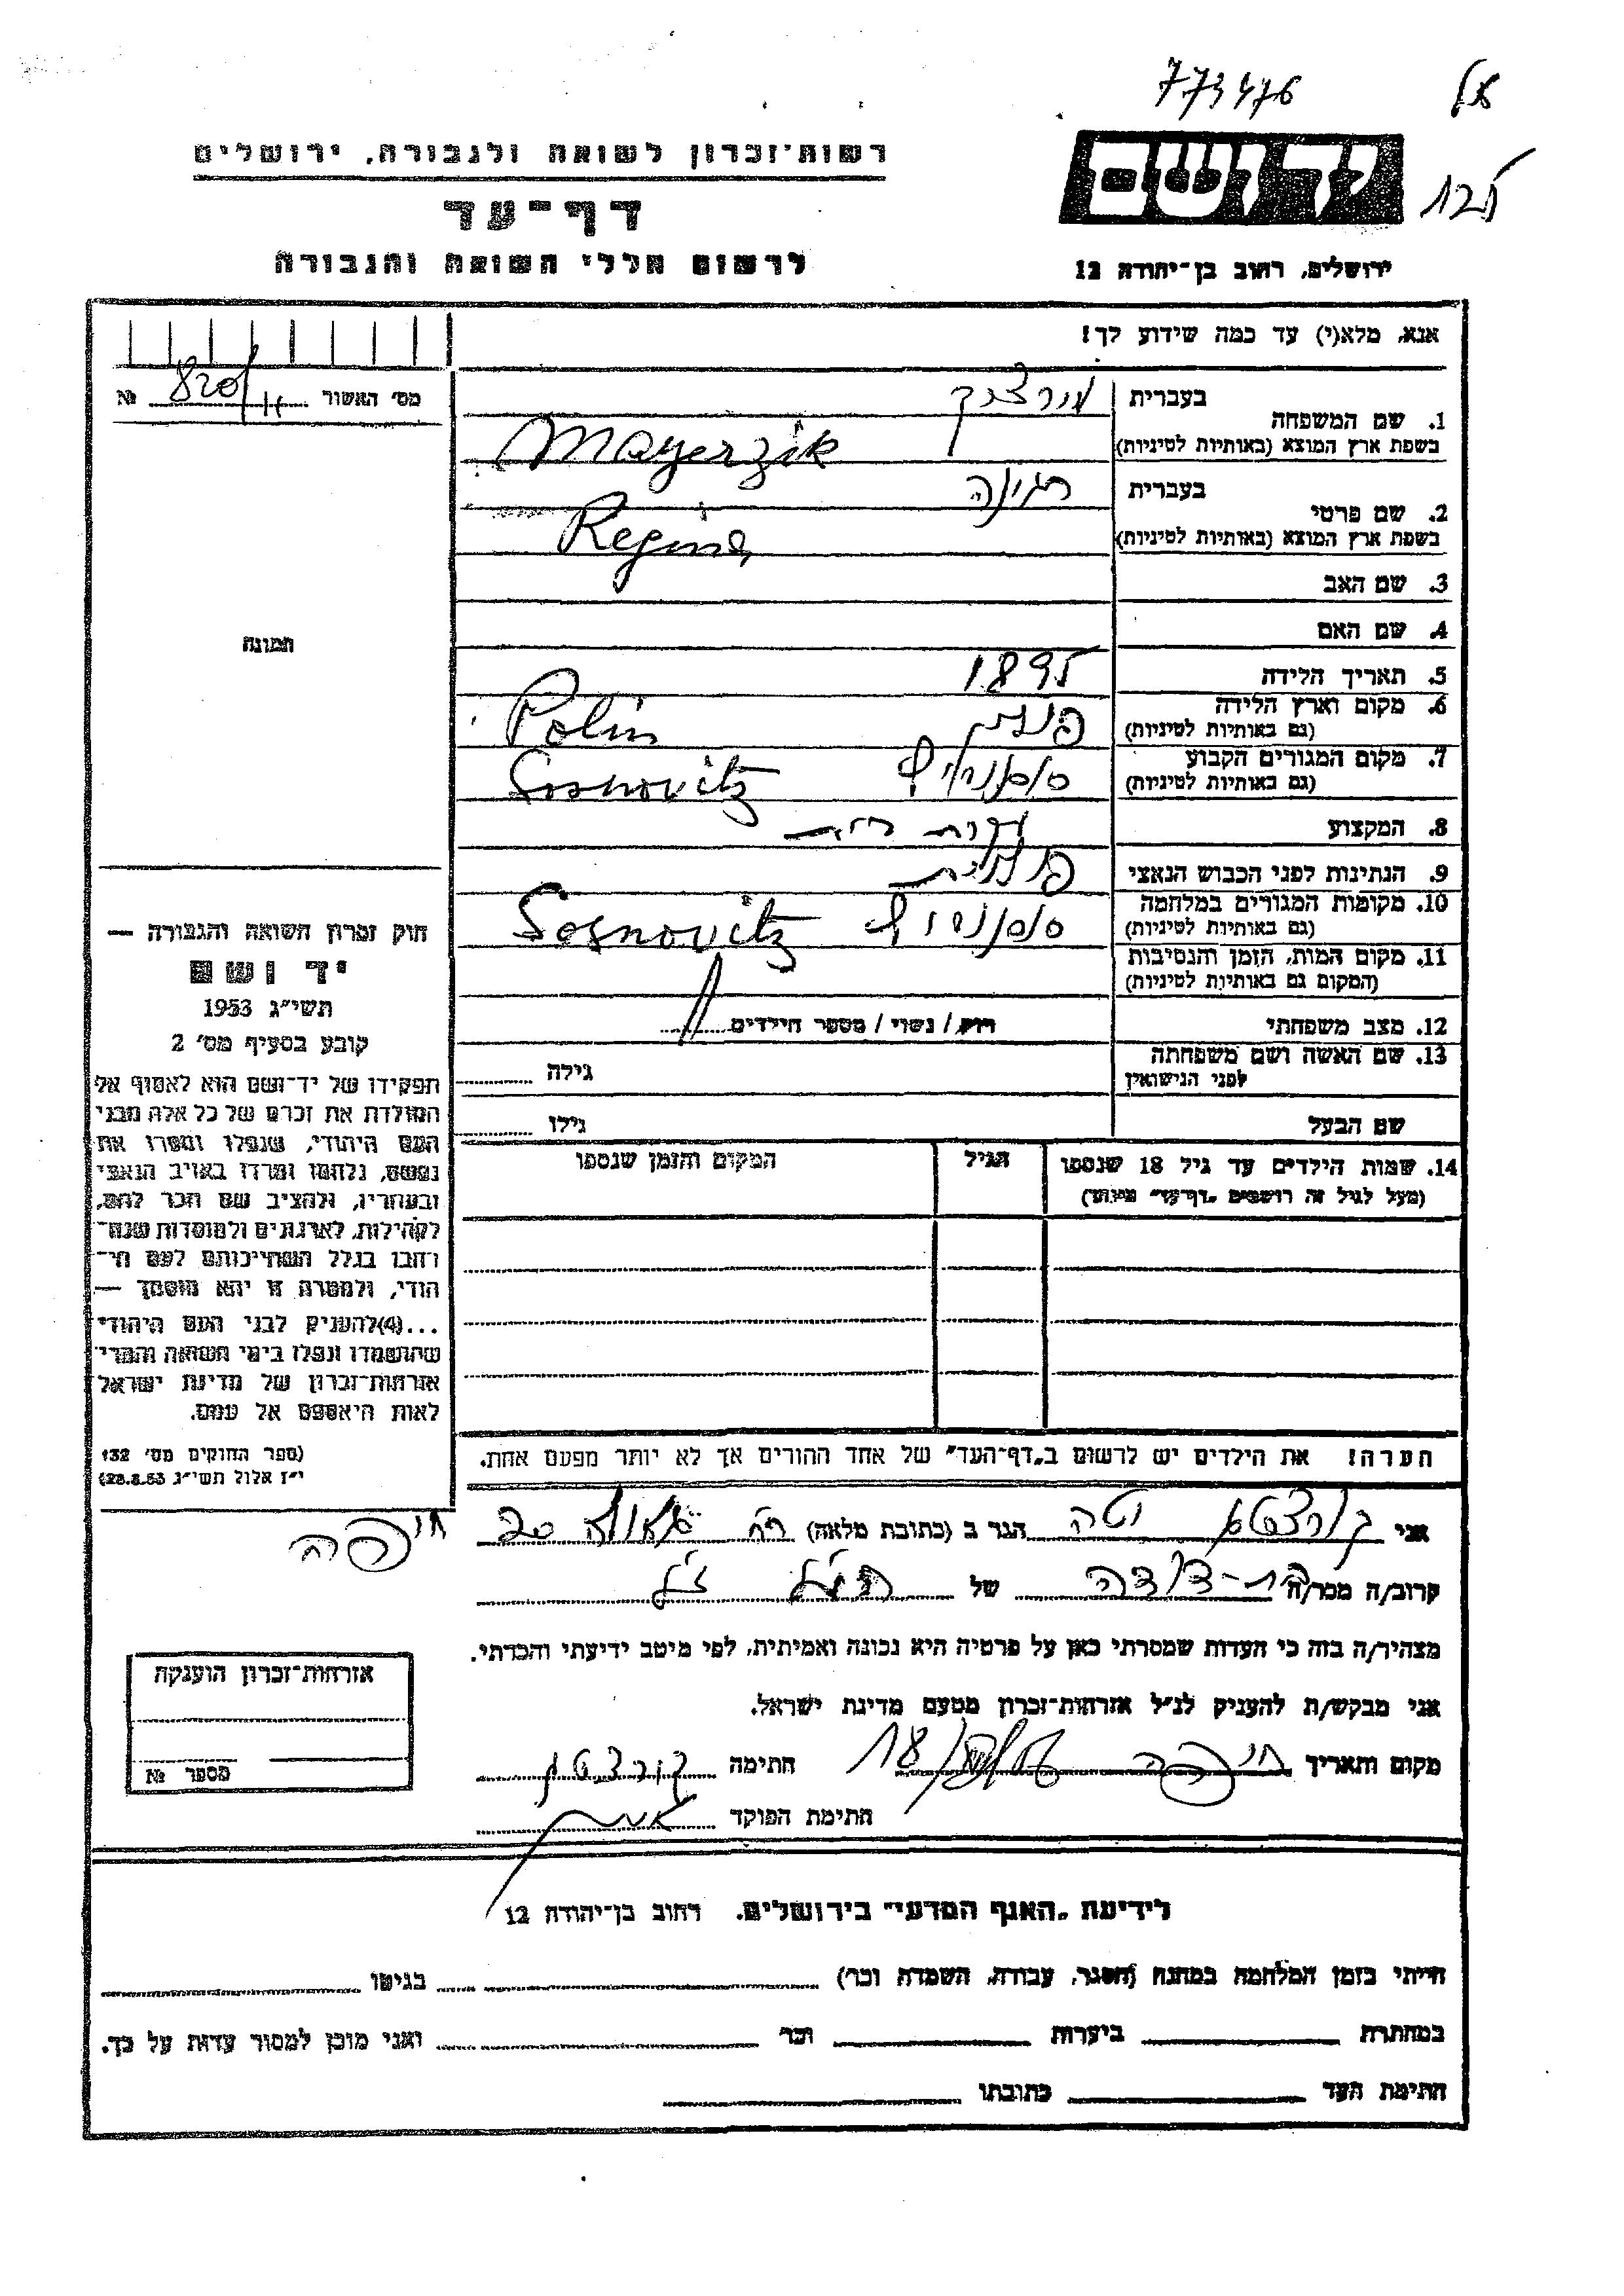 773476
רשות־זכרון לשואה ולגבורה, ירושלים
יד ושם
דף־עד
לרשום חללי השואה והגבורה
ירושלים, רחוב בן־יהודה 12
אנא, מלא(י) עד כמה שידוע לך!
מס' האשור 820/11 №
1. שם המשפחה
בעברית
בשפת ארץ המוצא (באותיות לטיניות) Mayerzik
2. שם פרטי
בעברית רגינה
בשפת ארץ המוצא (באותיות לטיניות) Regina
3. שם האב
4. שם האם
תמונה
5. תאריך הלידה 1895
6. מקום וארץ הלידה
(גם באותיות לטיניות) פולין Polin
7. מקום המגורים הקבוע
(גם באותיות לטיניות) סוסנוביץ Sosnovitz
8. המקצוע עקרת בית
9. הנתינות לפני הכבוש הנאצי פולנית
10. מקומות המגורים במלחמה
(גם באותיות לטיניות) סוסנוביץ Sosnovitz
11. מקום המות, הזמן והנסיבות
(המקום גם באותיות לטיניות)
12. מצב משפחתי רווק / נשוי / מספר הילדים
13. שם האשה ושם משפחתה
לפני הנישואין גילה
שם הבעל גילו
14. שמות הילדים עד גיל 18 שנספו
(מעל לגיל זה רושמים „דף־עד" מיוחד)
הגיל
המקום והזמן שנספו
חוק זכרון השואה והגבורה —
יד ושם
תשי״ג 1953
קובע בסעיף מס' 2
תפקידו של יד־ושם הוא לאסוף אל
המולדת את זכרם של כל אלה מבני
העם היהודי, שנפלו ומסרו את
נפשם, נלחמו ומרדו באויב הנאצי
ובעוזריו, ולהציב שם וזכר להם,
לקהילות, לארגונים ולמוסדות שנח־
רבו בגלל השתייכותם לעם הי־
הודי, ולמטרה זו יהא מוסמך —
...(4) להעניק לבני העם היהודי
שהושמדו ונפלו בימי השואה והמרי
אזרחות־זכרון של מדינת ישראל
לאות היאספם אל עמם.
(ספר החוקים מס' 132
י״ז אלול תשי״ג 28.8.53)
הערה! את הילדים יש לרשום ב„דף־העד" של אחד ההורים אך לא יותר מפעם אחת.
אני יטה הגר ב (כתובת מלאה) רח
חיפה
קרוב/ה מכר/ה בת-דודה של הנ״ל ז״ל
מצהיר/ה בזה כי העדות שמסרתי כאן על פרטיה היא נכונה ואמיתית, לפי מיטב ידיעתי והכרתי.
אני מבקש/ת להעניק לנ״ל אזרחות־זכרון מטעם מדינת ישראל.
מקום ותאריך חיפה 18 חתימה
חתימת הפוקד
אזרחות־זכרון הוענקה
מספר №
לידיעת „האגף המדעי" בירושלים. רחוב בן־יהודה 12
הייתי בזמן המלחמה במחנה (הסגר, עבודה, השמדה וכו') בגיטו
במחתרת ביערות וכו' ואני מוכן למסור עדות על כך.
חתימת העד כתובתו